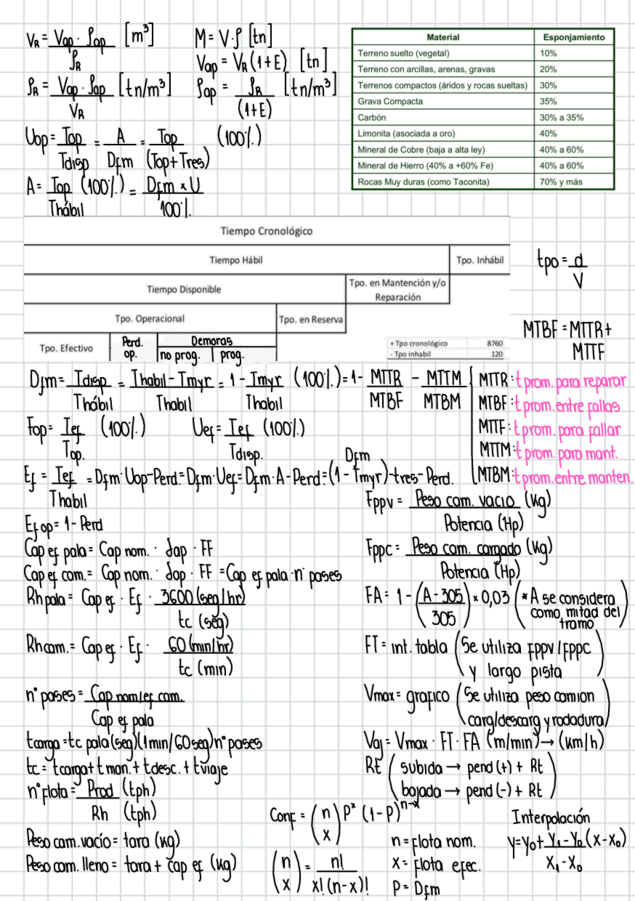 V_R = V_ap · ρ_ap / ρ_R [m³]
M = V·ρ [tn]
ρ_R = V_ap · ρ_ap / V_R [tn/m³]
V_ap = V_R (1+E) [tn]
ρ_ap = ρ_R / (1+E) [tn/m³]
Uop = Top / Tdisp = A / Dfm = Top / (Top + Tres) (100%)
A = Top / Thábil (100%) = Dfm × U / 100%
Material Esponjamiento
Terreno suelto (vegetal) 10%
Terreno con arcillas, arenas, gravas 20%
Terrenos compactos (áridos y rocas sueltas) 30%
Grava Compacta 35%
Carbón 30% a 35%
Limonita (asociada a oro) 40%
Mineral de Cobre (baja a alta ley) 40% a 60%
Mineral de Hierro (40% a +60% Fe) 40% a 60%
Rocas Muy duras (como Taconita) 70% y más
Tiempo Cronológico
Tiempo Hábil Tpo. Inhábil
Tiempo Disponible Tpo. en Mantención y/o Reparación
Tpo. Operacional Tpo. en Reserva
Tpo. Efectivo Perd. op. Demoras no prog. prog.
+ Tpo cronológico 8760
- Tpo inhabil 120
tpo = d / V
MTBF = MTTR + MTTF
Dfm = Tdisp / Thábil = Thabil - Tmyr / Thabil = 1 - Tmyr / Thabil (100%) = 1 - MTTR / MTBF - MTTM / MTBM
MTTR: t prom. para reparar
MTBF: t prom. entre fallas
MTTF: t prom. para fallar
MTTM: t prom. para mant.
MTBM: t prom. entre manten.
Fop = Tef / Top. (100%)
Uef = Tef / Tdisp. (100%)
Ef = Tef / Thabil = Dfm · Uop - Perd = Dfm · Uef = Dfm · A - Perd = (1 - Tmyr) - tres - Perd.
Dfm
Ef op = 1 - Perd
Fppv = Peso cam. vacio (kg) / Potencia (Hp)
Cap ef pala = Cap nom. · ρap · FF
Fppc = Peso cam. cargado (kg) / Potencia (Hp)
Cap ef cam. = Cap nom. · ρap · FF = Cap ef pala · n° pases
Rh pala = Cap ef · Ef · 3600 (seg/hr) / tc (seg)
FA = 1 - ((A - 305) / 305) × 0,03 (*A se considera como mitad del tramo)
Rh cam. = Cap ef · Ef · 60 (min/hr) / tc (min)
FT = int. tabla (Se utiliza Fppv/Fppc y largo pista)
n° pases = Cap nom/ef cam. / Cap ef pala
Vmax = grafico (Se utiliza peso camion carg/descarg y rodadura)
tcarga = tc pala (seg) (1min/60seg) n° pases
Vaj = Vmax · FT · FA (m/min) → (km/h)
tc = tcarga + t man. + t desc. + t viaje
Rt (subida → pend (+) + Rt
bajada → pend (-) + Rt)
n° flota = Prod (tph) / Rh (tph)
Conf = (n x) P^x (1-P)^(n-x)
Interpolación
Peso cam. vacío = tara (kg)
n = flota nom.
y = y₀ + y₁ - y₀ / x₁ - x₀ (x - x₀)
Peso cam. lleno = tara + cap ef (kg)
(n x) = n! / x! (n-x)!
x = flota efec.
P = Dfm